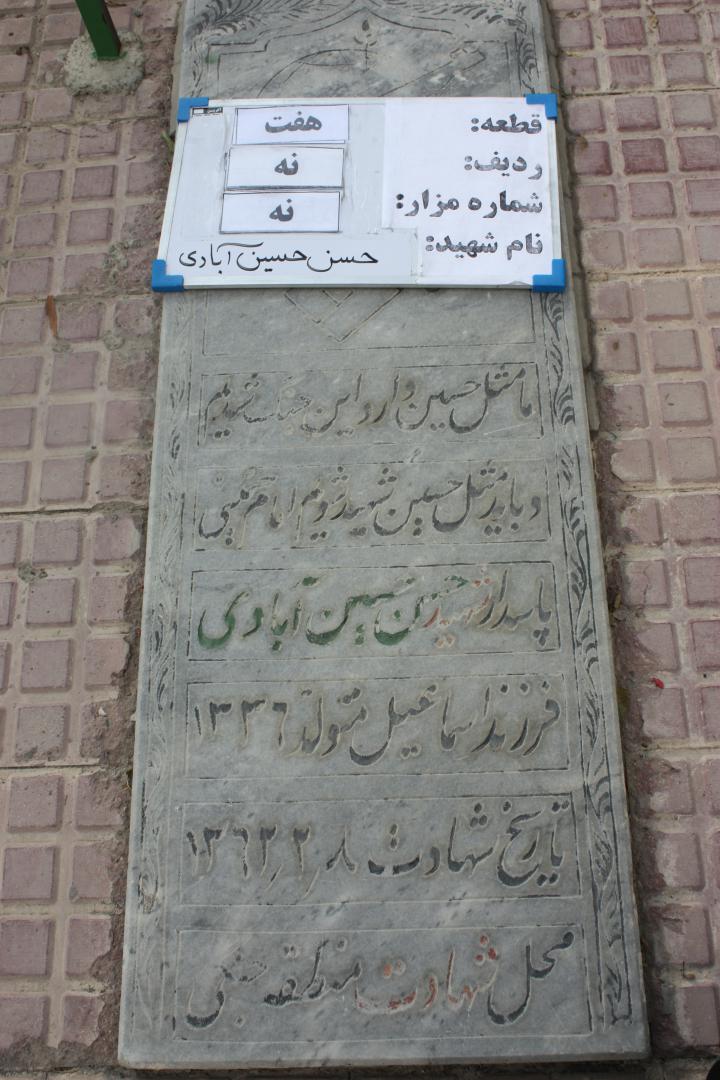 قطعه: هفت
ردیف: نه
شماره مزار: نه
نام شهید: حسن حسین آبادی
ما مثل حسین وارد این جنگ شدیم
و باید مثل حسین شهید شویم امام خمینی
پاسدار شهید حسن حسین آبادی
فرزند اسماعیل متولد ۱۳۳۶
تاریخ شهادت ۱۳۶۲٫۲٫۸
محل شهادت منطقه جنگی